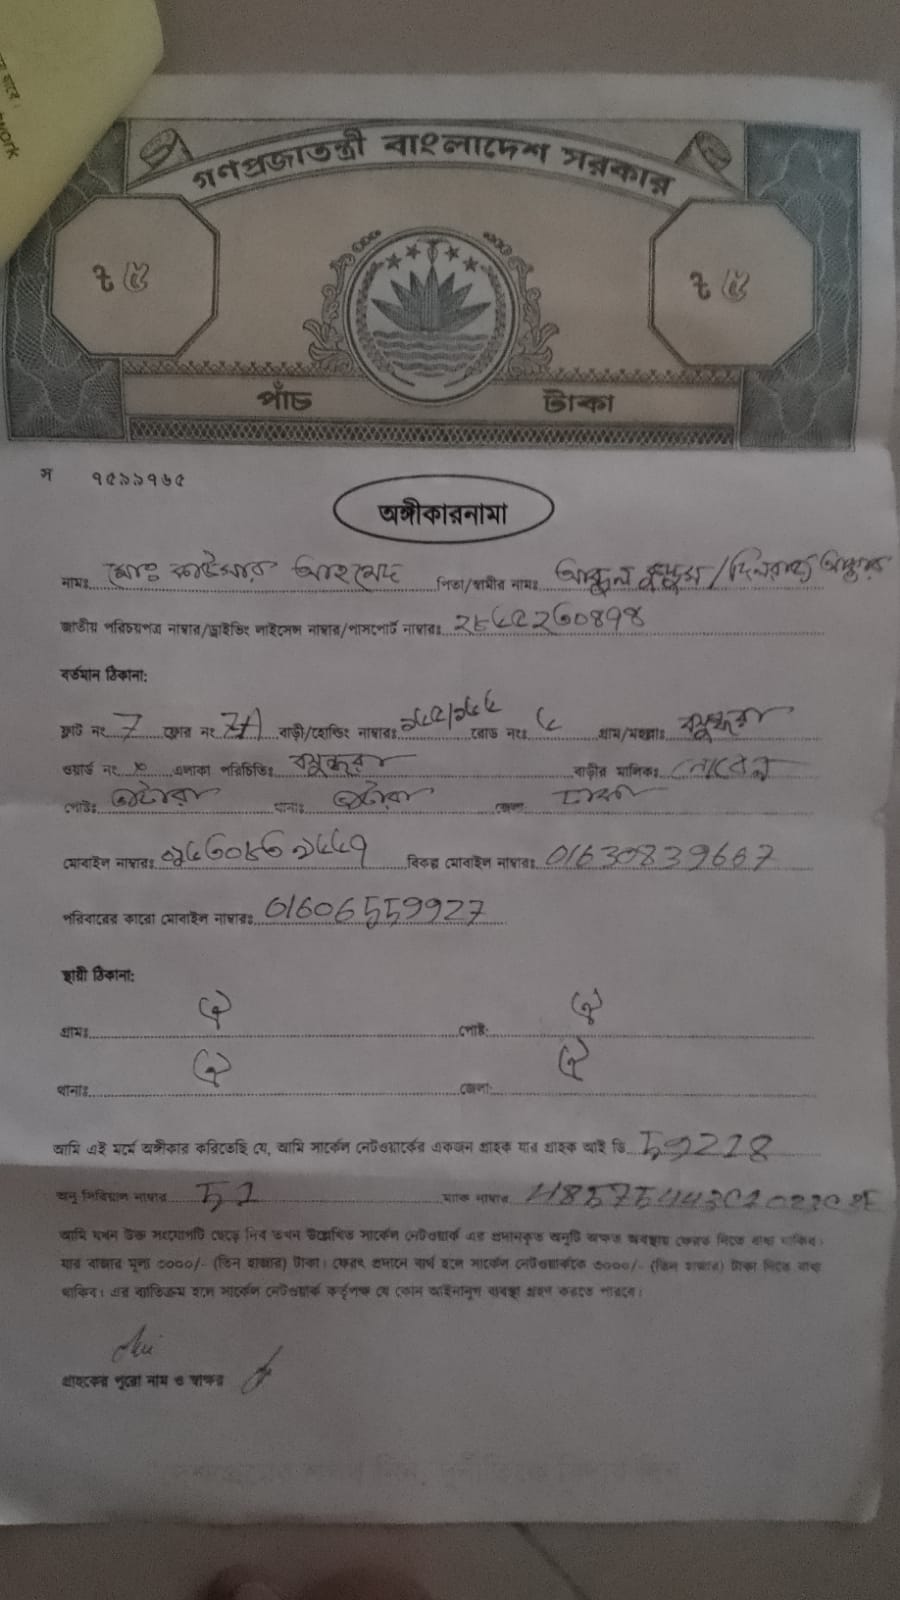 work
গণপ্রজাতন্ত্রী বাংলাদেশ সরকার
৳ ৫ ৳ ৫
পাঁচ টাকা
স ৭৫৯৯৭৬৫
অঙ্গীকারনামা
নামঃ মোঃ কাউসার আহমেদ পিতা/স্বামীর নামঃ আব্দুল কুদ্দুস/
জাতীয় পরিচয়পত্র নাম্বার/ড্রাইভিং লাইসেন্স নাম্বার/পাসপোর্ট নাম্বারঃ
বর্তমান ঠিকানা:
ফ্লাট নং 7 ফ্লোর নং 7A বাড়ী/হোল্ডিং নাম্বারঃ রোড নংঃ গ্রাম/মহল্লাঃ বসুন্ধরা
ওয়ার্ড নং এলাকা পরিচিতিঃ বসুন্ধরা বাড়ীর মালিকঃ
পোষ্টঃ ভাটারা থানাঃ ভাটারা জেলা ঢাকা
মোবাইল নাম্বারঃ বিকল্প মোবাইল নাম্বারঃ 01630839667
পরিবারের কারো মোবাইল নাম্বারঃ 01606559927
স্থায়ী ঠিকানা:
গ্রামঃ ঐ পোষ্ট: ঐ
থানাঃ ঐ জেলা: ঐ
আমি এই মর্মে অঙ্গীকার করিতেছি যে, আমি সার্কেল নেটওয়ার্কের একজন গ্রাহক যার গ্রাহক আই ডি 59228
অনু সিরিয়াল নাম্বার 51 ম্যাক নাম্বার
আমি যখন উক্ত সংযোগটি ছেড়ে দিব তখন উল্লেখিত সার্কেল নেটওয়ার্ক এর প্রদানকৃত অনুটি অক্ষত অবস্থায় ফেরত দিতে বাধ্য থাকিব।
যার বাজার মূল্য ৩০০০/- (তিন হাজার) টাকা। ফেরৎ প্রদানে ব্যর্থ হলে সার্কেল নেটওয়ার্ককে ৩০০০/- (তিন হাজার) টাকা দিতে বাধ্য
থাকিব। এর ব্যতিক্রম হলে সার্কেল নেটওয়ার্ক কর্তৃপক্ষ যে কোন আইনানুগ ব্যবস্থা গ্রহণ করতে পারবে।
গ্রাহকের পুরো নাম ও স্বাক্ষর